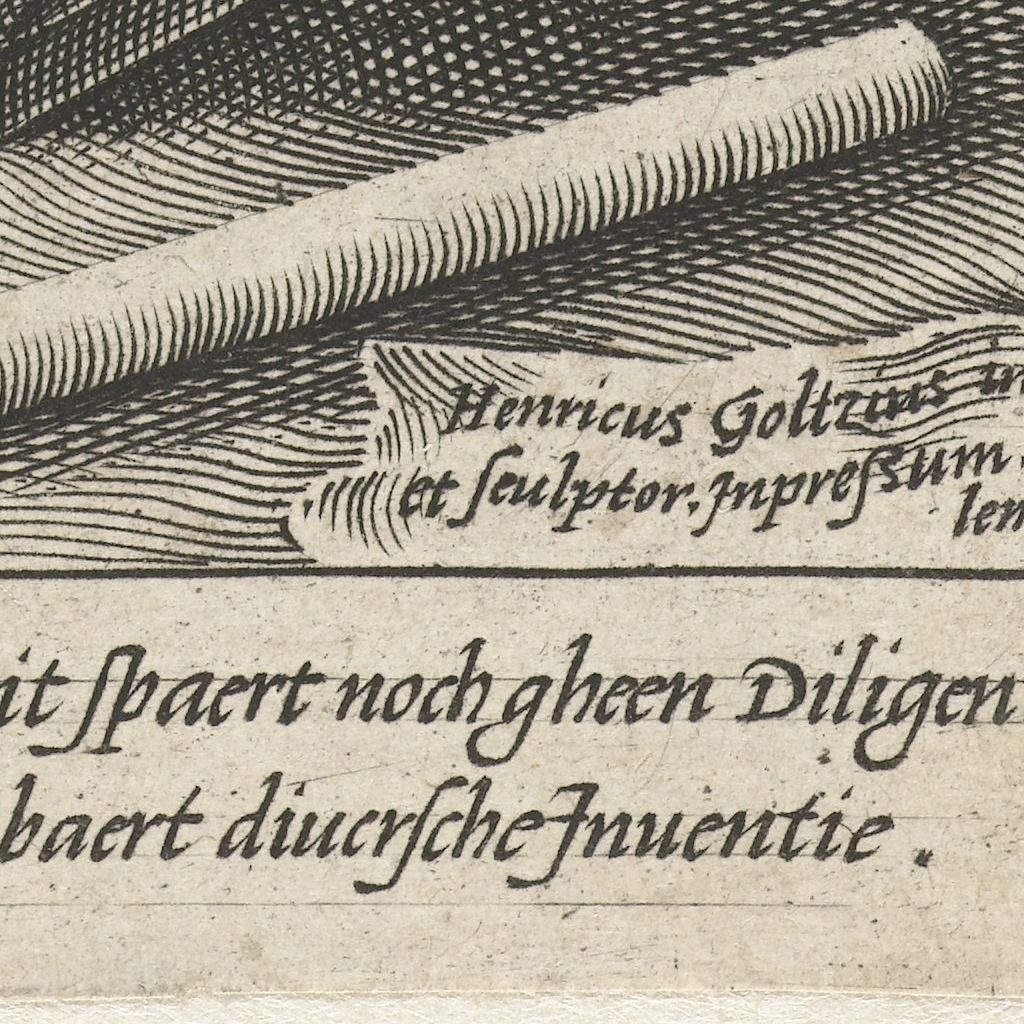 Henricus Goltzius in
et ſculptor. Jnpreſsum
lem
it ſpaert noch gheen Diligen
baert diuerſche Jnuentie .